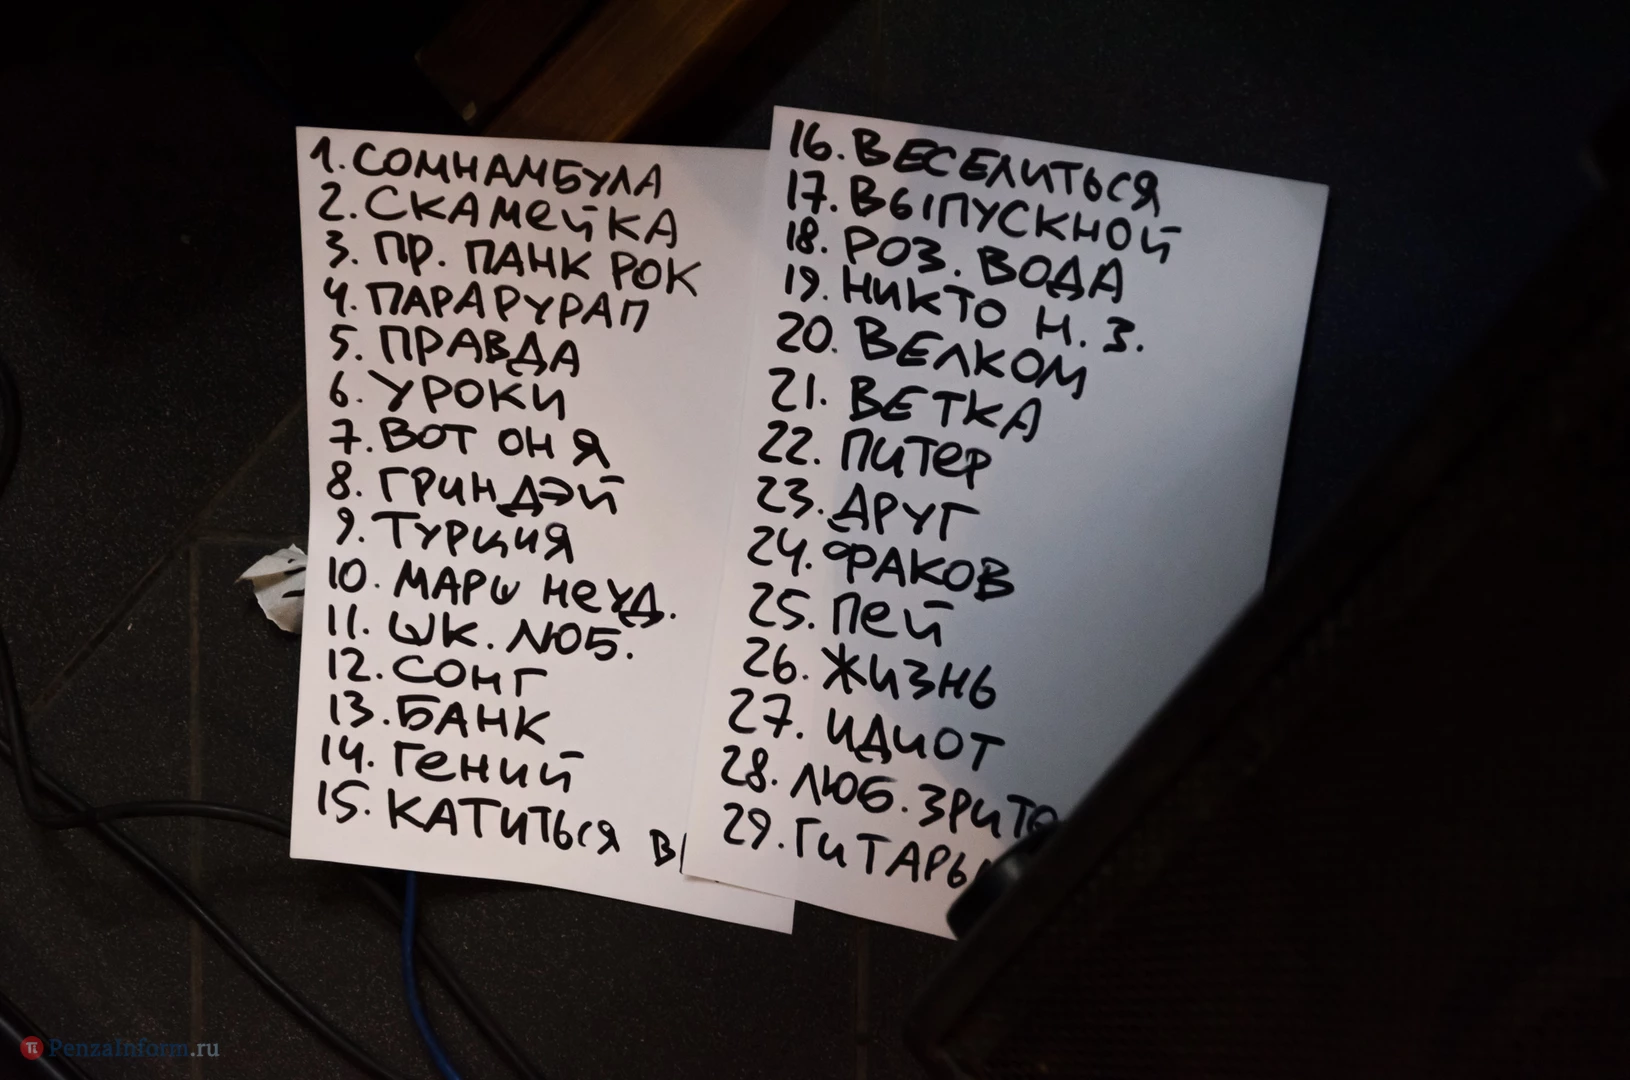 1. СОМНАМБУЛА
2. СКАМЕЙКА
3. ПР. ПАНК РОК
4. ПАРАРУРАП
5. ПРАВДА
6. УРОКИ
7. ВОТ ОН Я
8. ГРИНДЭЙ
9. ТУРЦИЯ
10. МАРШ НЕУД.
11. ШК. ЛЮБ.
12. СОНГ
13. БАНК
14. ГЕНИЙ
15. КАТИТЬСЯ
16. ВЕСЕЛИТЬСЯ
17. ВЫПУСКНОЙ
18. РОЗ. ВОДА
19. НИКТО Н. З.
20. ВЕЛКОМ
21. ВЕТКА
22. ПИТЕР
23. ДРУГ
24. ФАКОВ
25. ПЕЙ
26. ЖИЗНЬ
27. ИДИОТ
28. ЛЮБ. ЗРИТЕ
29. ГИТАРЫ
PenzaInform.ru